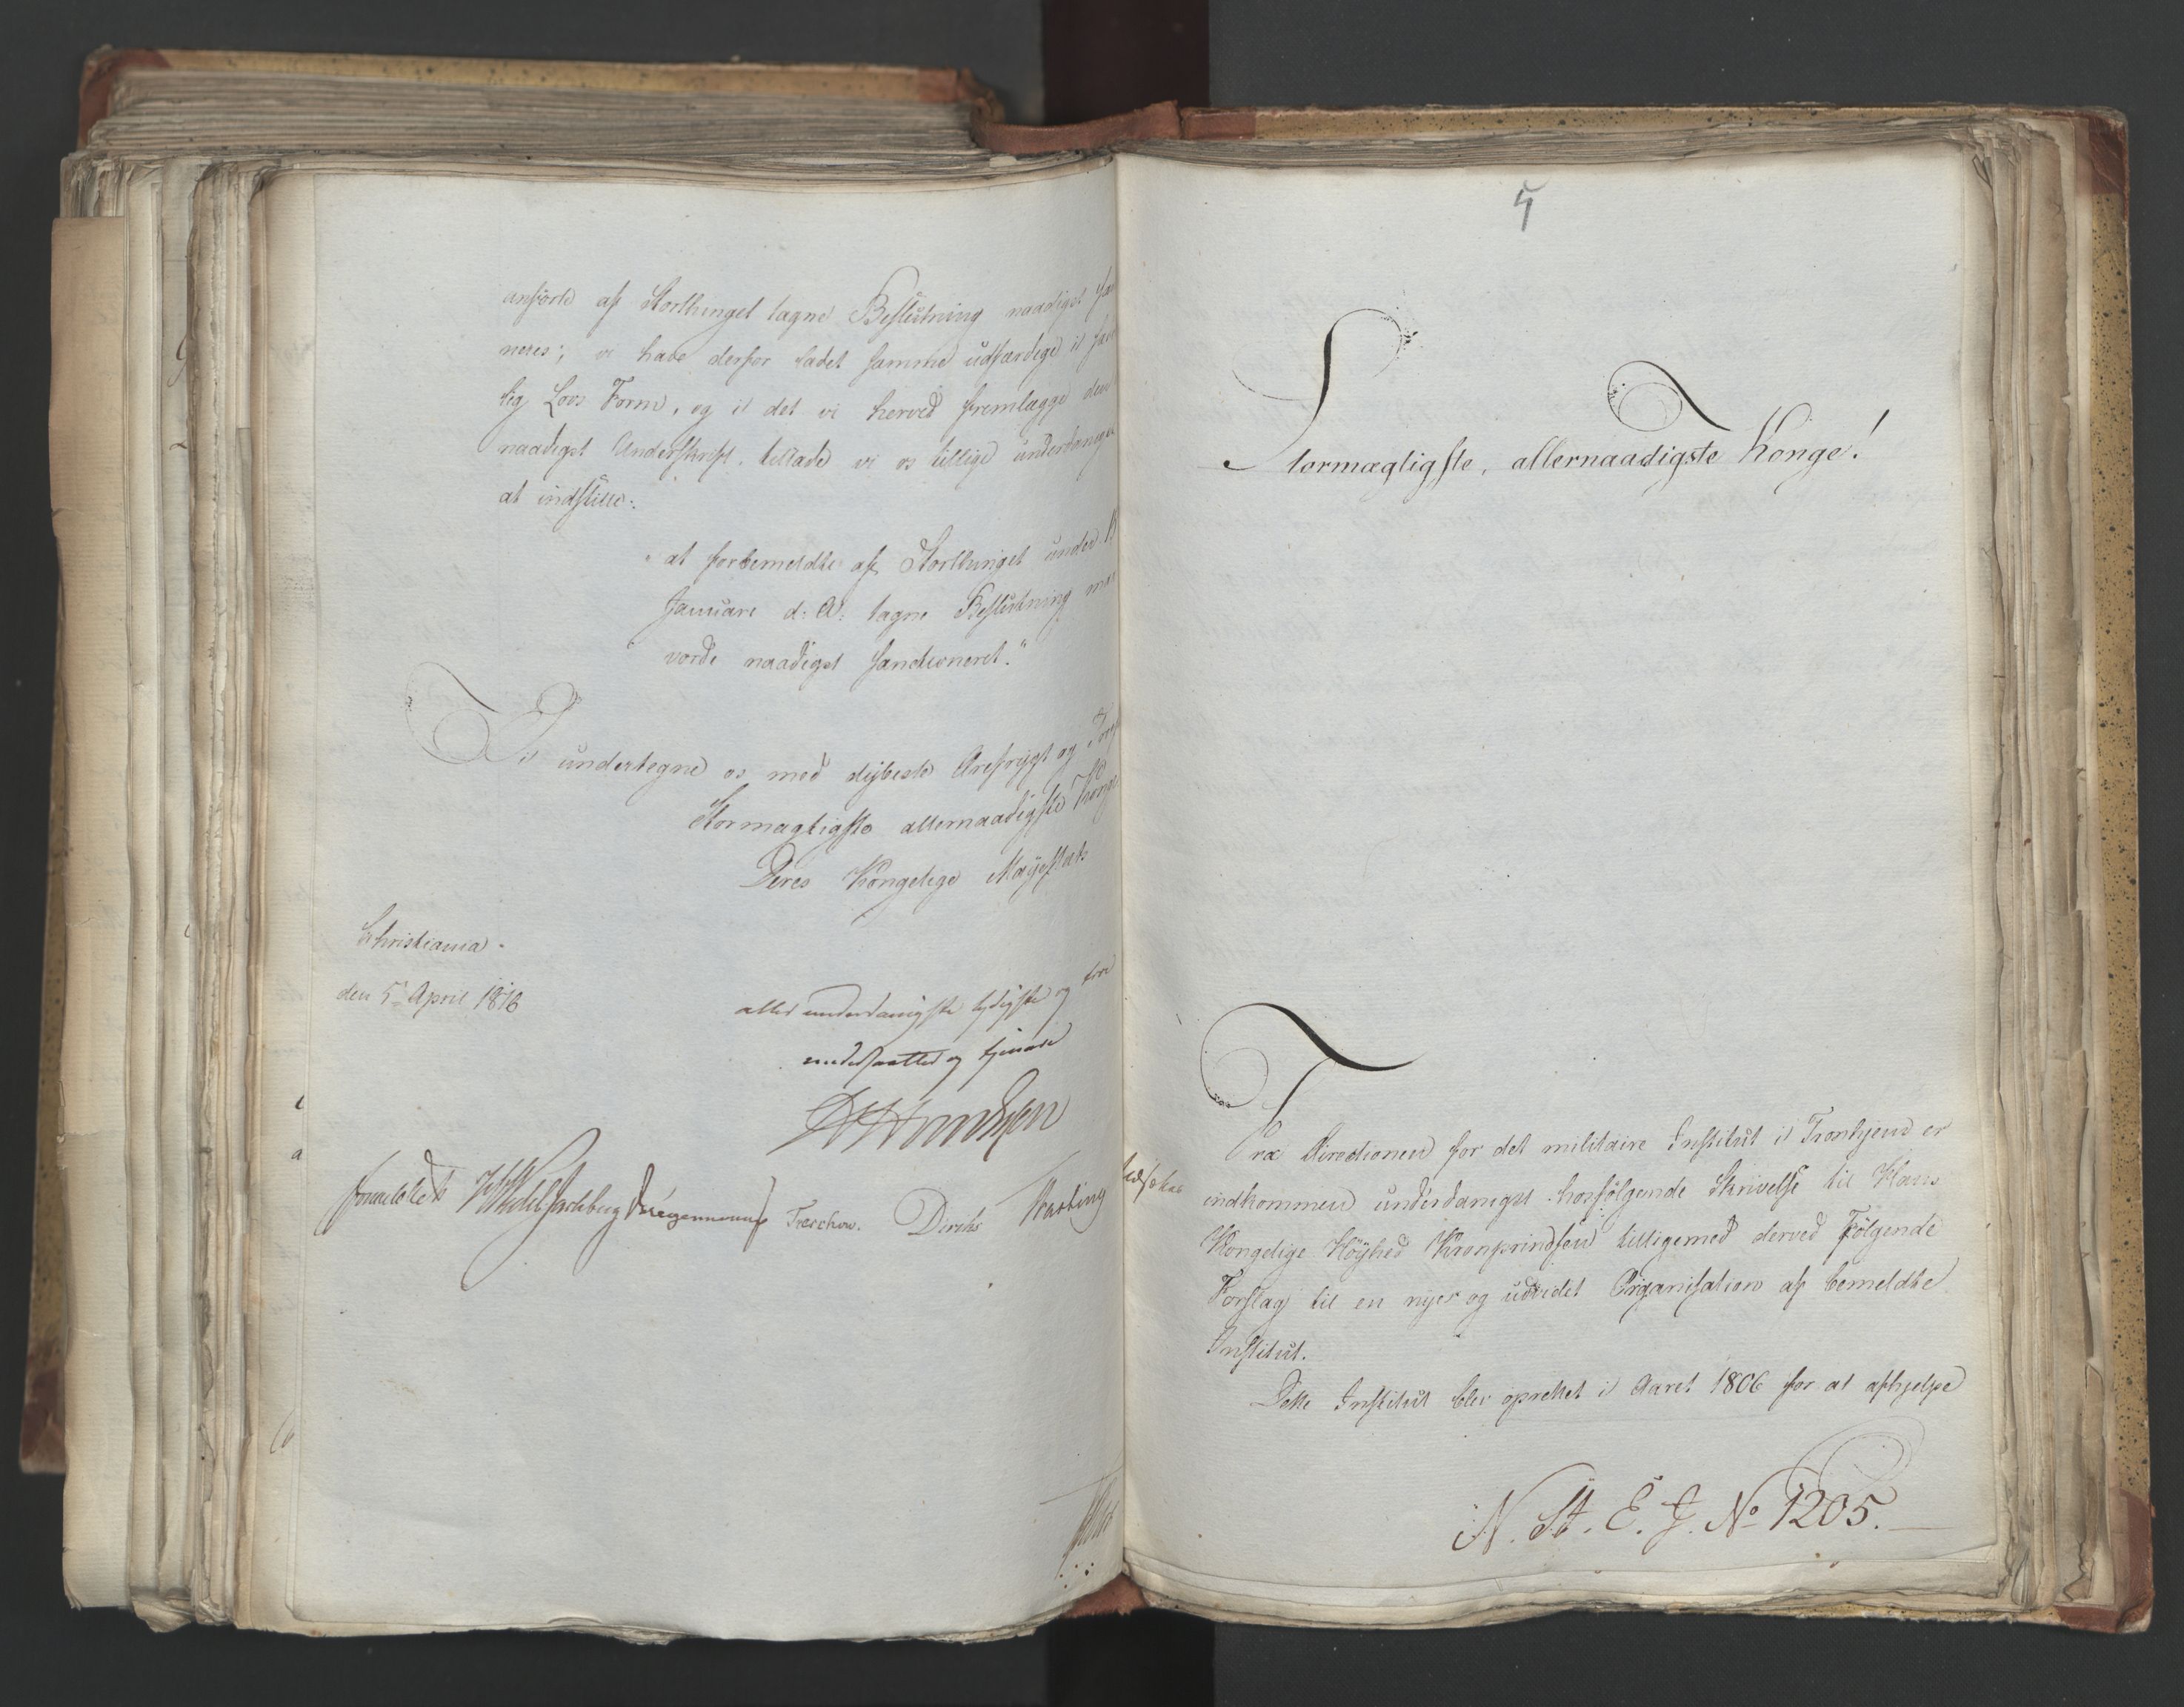 anförte af Storthinget tagne Beslutning naadigst san
neres; vi have derfor ladet samme udfærdige i sæd
lig Lovs Form, og i det vi herved fremlægge den
naadigst Underskrift, tillade vi os tillige underdanigst
at indstille:
" at forbemeldte af Storthinget under
Januari d: A: tagne Beslutning maa
vorde naadigst sanctioneret."
Vi undertegne os med dybeste Ærefrygt og
Stormægtigste allernaadigste Konge
Deres Kongelige Majestæts
Christiania
den 5te April 1816
allerunderdanigste lydigste og troe
undersaatter og tjenere
Sommerhielm Wedel Jarlsberg Treschow. Diriks Hasting
5
Stormægtigste, allernaadigste Konge!
Fra Directionen for det militaire Institut i Tronhjem er
indkommen underdanigst hosfölgende Skrivelse til Hans
Kongelige Höyhed Kronprindsen tilligemed derved Fölgende
Forslag til en nyer og udvidet Organisation af bemeldte
Institut.
Dette Institut blev oprettet i Aaret 1806 for at afhjelpe
N. St. E. J. No 1205.